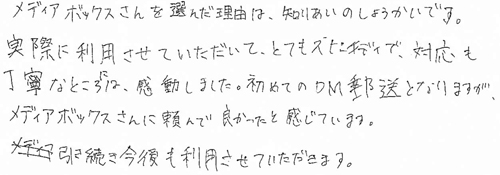 メディアボックスさんを選んだ理由は、知りあいのしょうかいです。
実際に利用させていただいて、とてもスピーディで、対応も
丁寧なところは、感動しました。初めてのDM郵送となりますが、
メディアボックスさんに頼んで良かったと感じています。
引き続き今後も利用させていただきます。